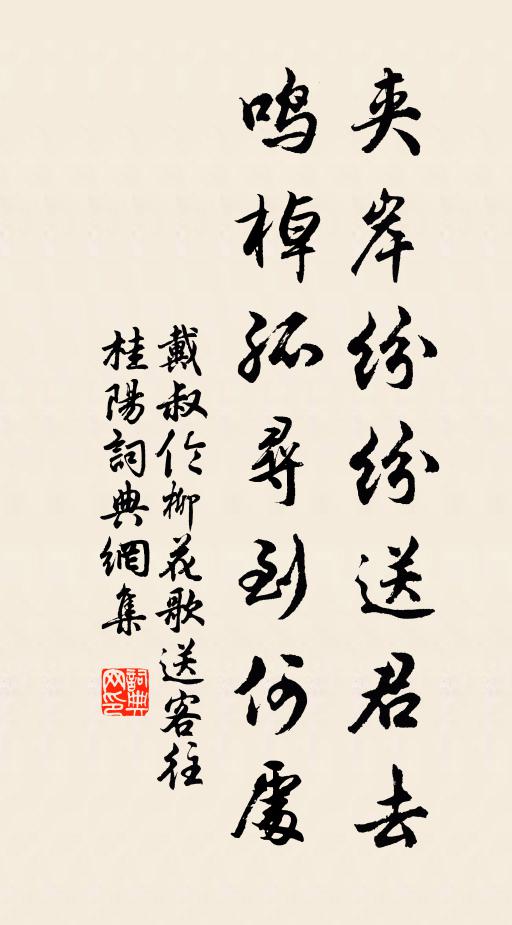 夹岸纷纷送君去
鸣棹孤寻到何處
戴叔伦柳花歌送客往
桂陽詞典網集
詞典网印